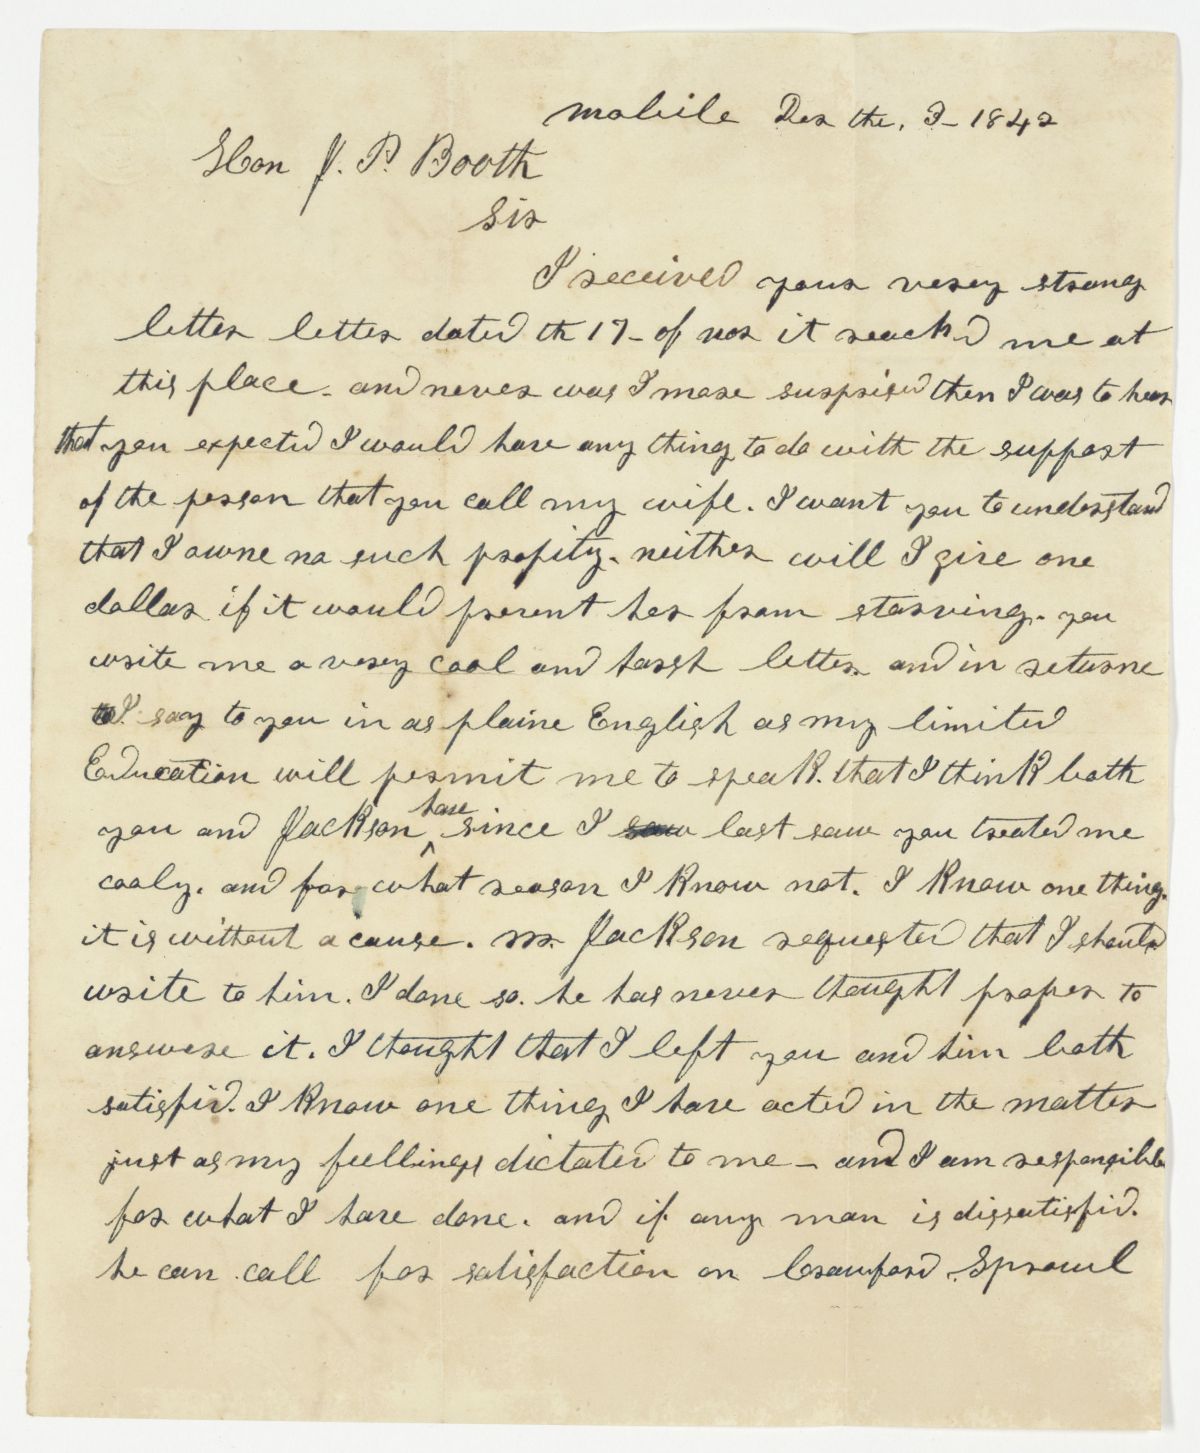 mobile Des the. 3- 1842
Hon J. P. Booth
Sir
I received your verey strong
letter letter dated th 17- of nov it reachd me at
this place. and never was I more surprised then I was to hear
that you expected I would have any thing to do with the support
of the person that you call my wife. I want you to understand
that I owne no such propity. neither will I give one
dollar if it would prevent her from starving. you
write me a verey cool and harsh letter and in returne
to I say to you in as plaine English as my limited
Education will permit me to speak. that I think both
you and Jackson have since I saw last saw you treated me
cooly. and for what reason I know not. I know one thing.
it is without a cause. mr. Jackson requested that I should
write to him. I done so. he has never thought proper to
answere it. I thought that I left you and him both
satisfid. I know one thing I have acted in the matter
just as my fullings dictated to me - and I am responsible
for what I have done. and if any man is dissatisfid.
he can call for satisfaction on Crawford Sprowl